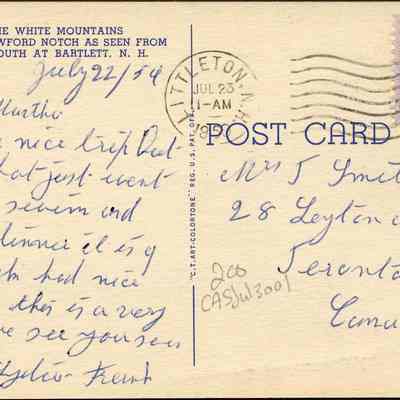 HE WHITE MOUNTAINS
WFORD NOTCH AS SEEN FROM
OUTH AT BARTLETT, N. H.
July 22/54
Martha
nice trip Out
just went
seven and
dinner it is a
had nice
this is a very
see you soon
LITTLETON, N.H.
JUL 23
1-AM
POST CARD
"C.T. ART-COLORTONE" REG. U.S. PAT. OFF.
Mrs J Smit
28 Leyton
Toronto
Cana
200
CASJul3001